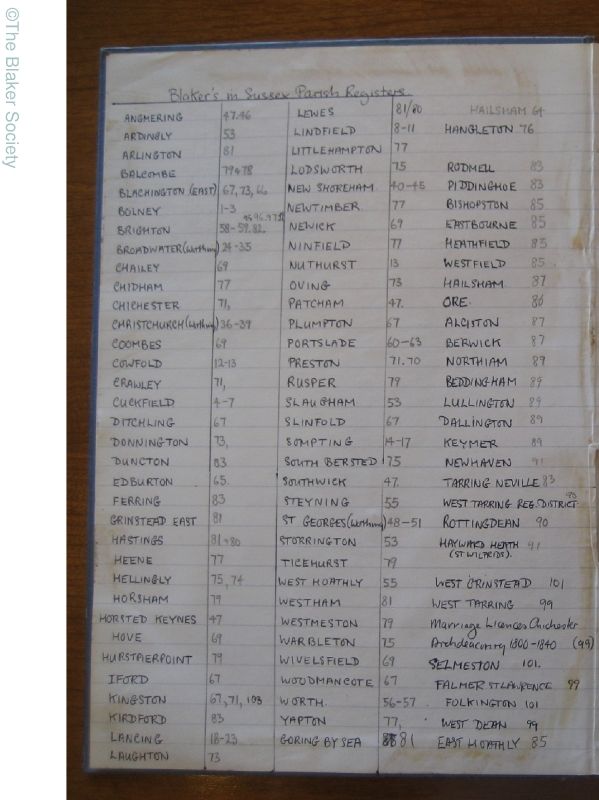 ©The Blaker Society
Blaker's in Sussex Parish Registers
ANGMERING 47.46
ARDINGLY 53
ARLINGTON 81
BALCOMBE 79+78
BLACHINGTON (EAST) 67, 73, 66
BOLNEY 1-3
BRIGHTON 58-59.82.
BROADWATER (Worthing) 24-35
CHAILEY 69
CHIDHAM 77
CHICHESTER 71,
CHRISTCHURCH (Worthing) 36-39
COOMBES 69
COWFOLD 12-13
CRAWLEY 71,
CUCKFIELD 4-7
DITCHLING 67
DONNINGTON 73,
DUNCTON 83
EDBURTON 65.
FERRING 83
GRINSTEAD EAST 81
HASTINGS 81+80
HEENE 77
HELLINGLY 75, 74
HORSHAM 79
HORSTED KEYNES 47
HOVE 69
HURSTPIERPOINT 79
IFORD 67
KINGSTON 67, 71, 103
KIRDFORD 83
LANCING 18-23
LAUGHTON 73
LEWES 81/80
LINDFIELD 8-11
LITTLEHAMPTON 77
LODSWORTH 75
NEW SHOREHAM 40-45
NEWTIMBER 77
NEWICK 69
NINFIELD 77
NUTHURST 13
OVING 73
PATCHAM 47.
PLUMPTON 67
PORTSLADE 60-63
PRESTON 71.70
RUSPER 79
SLAUGHAM 53
SLINFOLD 67
SOMPTING 14-17
SOUTH BERSTED 75
SOUTHWICK 47.
STEYNING 55
ST GEORGES (Worthing) 48-51
STORRINGTON 53
TICEHURST 79
WEST HOATHLY 55
WESTHAM 81
WESTMESTON 79
WARBLETON 75
WIVELSFIELD 69
WOODMANCOTE 67
WORTH 56-57
YAPTON 77,
GORING BY SEA 81
HAILSHAM 64
HANGLETON 76
RODMELL 83
PIDDINGHOE 83
BISHOPSTON 85
EASTBOURNE 85
HEATHFIELD 83
WESTFIELD 85
HAILSHAM 87
ORE. 86
ALCISTON 87
BERWICK 87
NORTHIAM 89
BEDDINGHAM 89
LULLINGTON 89
DALLINGTON 89
KEYMER 89
NEWHAVEN 91
TARRING NEVILLE 83
WEST TARRING REG. DISTRICT 90
ROTTINGDEAN 90
HAYWARD HEATH 91
(ST WILFRIDS).
WEST GRINSTEAD 101
WEST TARRING 99
Marriage Licences Chichester
Archdeaconry 1800-1840 (99)
SELMESTON 101.
FALMER ST LAWRENCE 99
FOLKINGTON 101
WEST DEAN 99
EAST HOATHLY 85